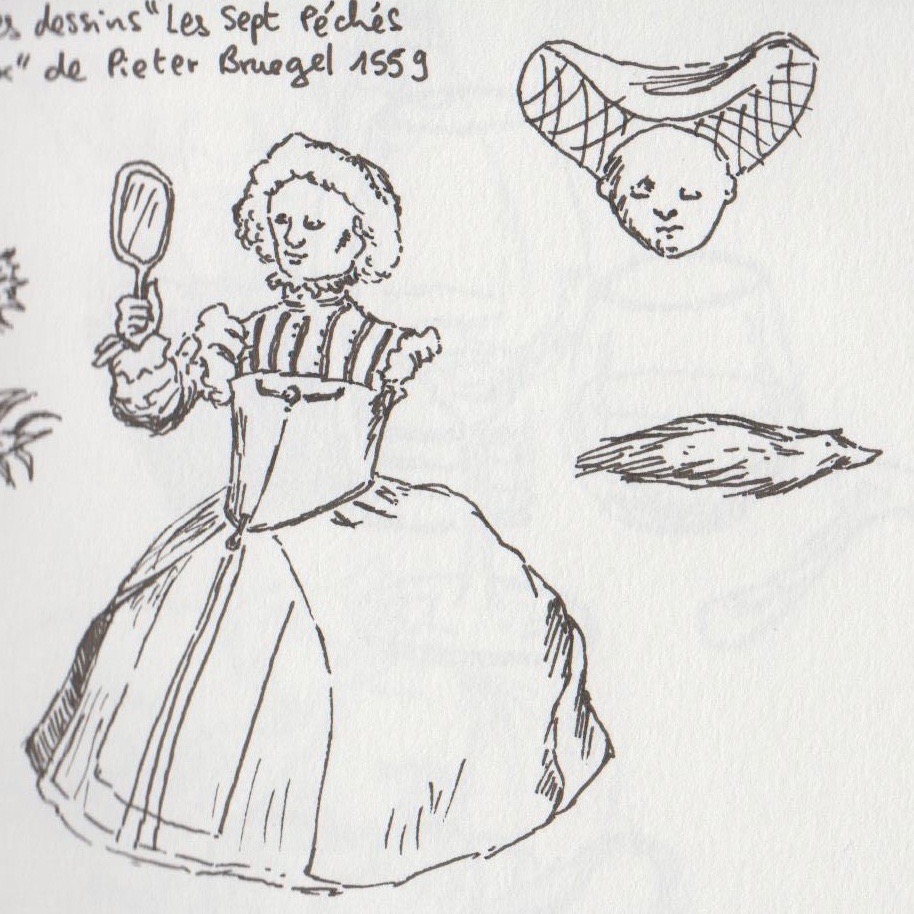 es dessins "Les Sept Péchés
x" de Pieter Bruegel 1559